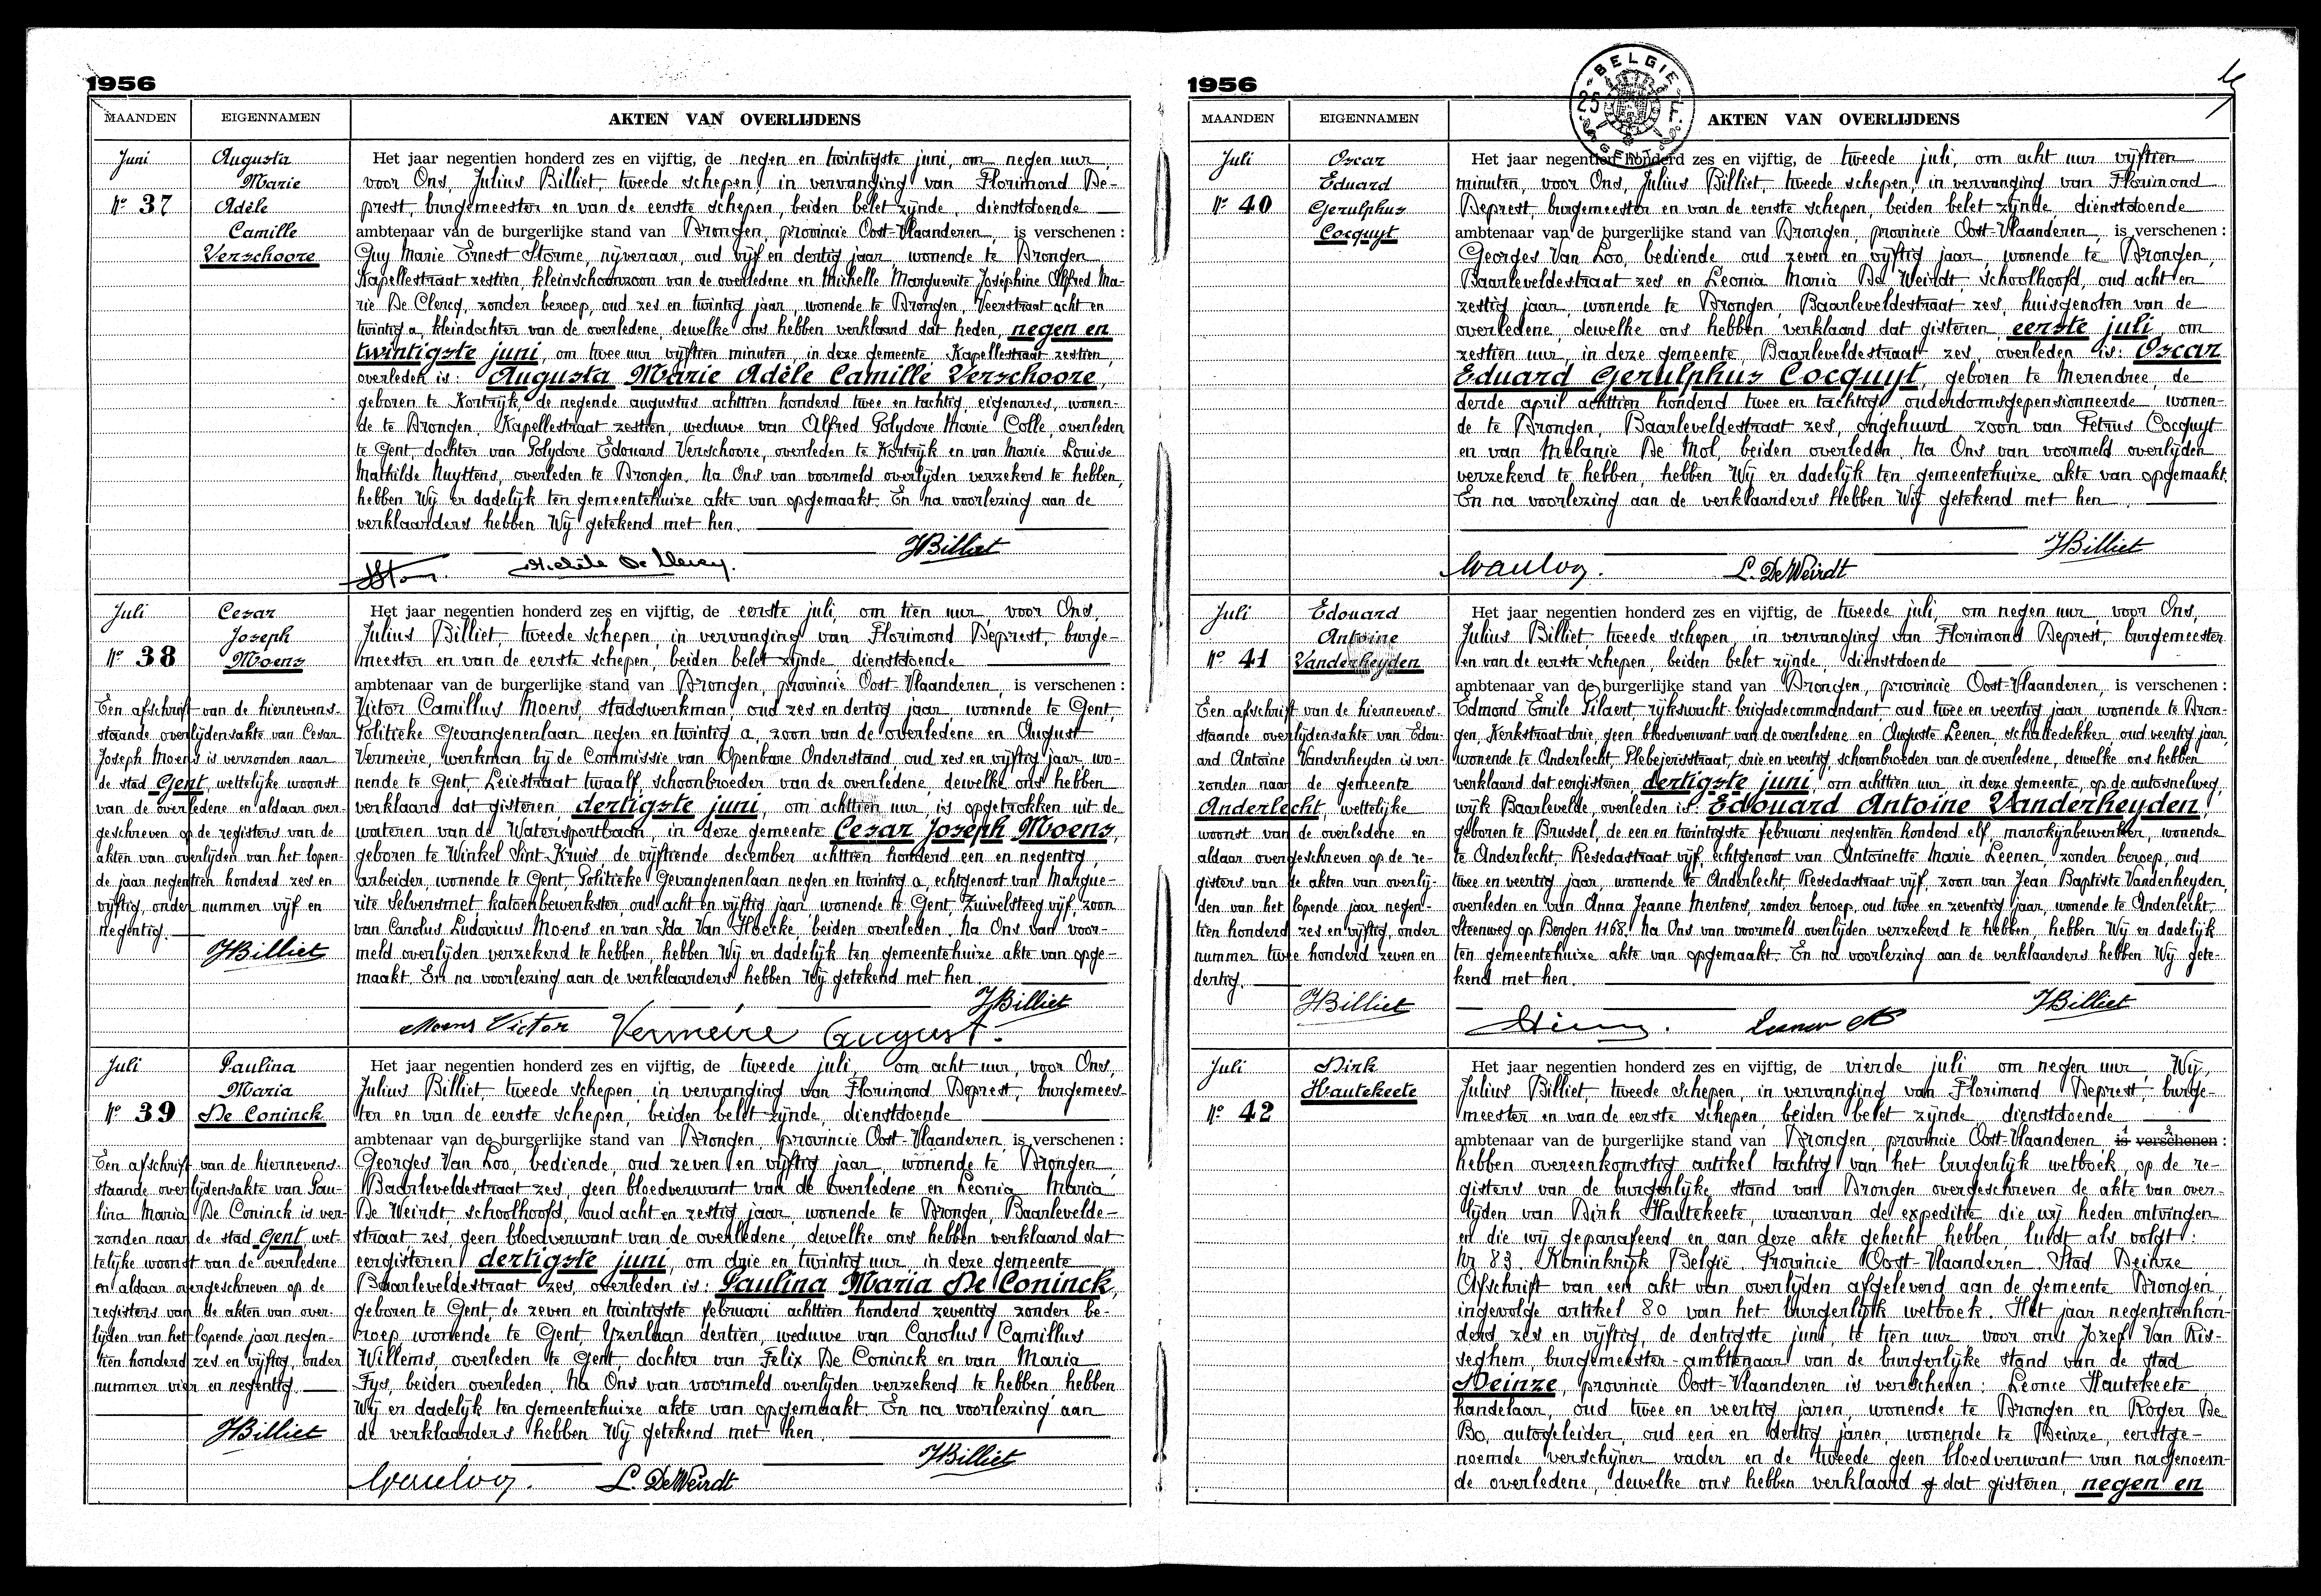 1956
MAANDEN
EIGENNAMEN
AKTEN VAN OVERLIJDENS
Juni
Nr 37
Augusta
Marie
Adèle
Camille
Verschoore
Het jaar negentien honderd zes en vijftig, de negen en twintigste juni, om negen uur,
voor Ons, Julius Billiet, tweede schepen, in vervanging van Florimond De-
prest, burgemeester en van de eerste schepen, beiden belet zijnde, dienstdoende
ambtenaar van de burgerlijke stand van Drongen, provincie Oost-Vlaanderen, is verschenen :
Guy Marie Ernest Storme, nijveraar, oud vijf en dertig jaar wonende te Drongen
Kapellestraat zestien, kleinschoonzoon van de overledene en Michelle Marguerite Joséphine Alfred Ma-
rie De Clercq, zonder beroep, oud zes en twintig jaar, wonende te Drongen, Veerstraat acht en
twintig a, kleindochter van de overledene, dewelke ons hebben verklaard dat heden, negen en
twintigste juni, om twee uur vijftien minuten, in deze gemeente, Kapellestraat zestien,
overleden is: Augusta Marie Adèle Camille Verschoore,
geboren te Kortrijk, de negende augustus achttien honderd twee en tachtig, eigenares, wonen-
de te Drongen, Kapellestraat zestien, weduwe van Alfred Polydore Marie Colle, overleden
te Gent, dochter van Polydore Edouard Verschoore, overleden te Kortrijk en van Marie Louise
Mathilde Nuyttens, overleden te Drongen. Na Ons van voormeld overlijden verzekerd te hebben,
hebben Wij er dadelijk ten gemeentehuize akte van opgemaakt. En na voorlezing aan de
verklaarders hebben Wij getekend met hen.
JBilliet
Michèle De Clercq.
Juli
Nr 38
Cesar
Joseph
Moens
Een afschrift van de hiernevens-
staande overlijdensakte van Cesar
Joseph Moens is verzonden naar
de stad Gent, wettelijke woonst
van de overledene en aldaar over-
geschreven op de registers van de
akten van overlijden van het lopen-
de jaar negentien honderd zes en
vijftig, onder nummer vijf en
negentig.
JBilliet
Het jaar negentien honderd zes en vijftig, de eerste juli, om tien uur, voor Ons,
Julius Billiet, tweede schepen, in vervanging van Florimond Deprest, burge-
meester en van de eerste schepen, beiden belet zijnde, dienstdoende
ambtenaar van de burgerlijke stand van Drongen, provincie Oost-Vlaanderen, is verschenen :
Victor Camillus Moens, stadswerkman, oud zes en dertig jaar, wonende te Gent,
Politieke Gevangenenlaan negen en twintig a, zoon van de overledene en August
Vermeire, werkman bij de Commissie van Openbare Onderstand, oud zes en vijftig jaar, wo-
nende te Gent, Leiestraat twaalf, schoonbroeder van de overledene, dewelke ons hebben
verklaard dat gisteren, dertigste juni, om achttien uur, is opgetrokken uit de
wateren van de Watersportbaan, in deze gemeente Cesar Joseph Moens,
geboren te Winkel Sint-Kruis, de vijftiende december achttien honderd een en negentig,
arbeider, wonende te Gent, Politieke Gevangenenlaan negen en twintig a, echtgenoot van Margue-
rite Selversmet katoenbewerkster, oud acht en vijftig jaar, wonende te Gent, Zuivelsteeg vijf, zoon
van Carolus Ludovicus Moens en van Ida Van Hoecke, beiden overleden. Na Ons van voor-
meld overlijden verzekerd te hebben, hebben Wij er dadelijk ten gemeentehuize akte van opge-
maakt. En na voorlezing aan de verklaarders hebben Wij getekend met hen.
JBilliet
Moens Victor Vermeire August.
Juli
Nr 39
Paulina
Maria
De Coninck
Een afschrift van de hiernevens-
staande overlijdensakte van Pau-
lina Maria De Coninck is ver-
zonden naar de stad Gent, wet-
telijke woonst van de overledene
en aldaar overgeschreven op de
registers van de akten van over-
lijden van het lopende jaar negen-
tien honderd zes en vijftig, onder
nummer vier en negentig.
JBilliet
Het jaar negentien honderd zes en vijftig, de tweede juli, om acht uur, voor Ons,
Julius Billiet, tweede schepen, in vervanging van Florimond Deprest, burgemees-
ter en van de eerste schepen, beiden belet zijnde, dienstdoende
ambtenaar van de burgerlijke stand van Drongen, provincie Oost-Vlaanderen, is verschenen :
Georges Van Loo, bediende, oud zeven en vijftig jaar, wonende te Drongen,
Baarleveldestraat zes, geen bloedverwant van de overledene en Leonia Maria
De Weirdt, schoolhoofd, oud acht en zestig jaar, wonende te Drongen, Baarlevelde-
straat zes, geen bloedverwant van de overledene, dewelke ons hebben verklaard dat
eergisteren dertigste juni, om drie en twintig uur, in deze gemeente
Baarleveldestraat zes, overleden is: Paulina Maria De Coninck,
geboren te Gent, de zeven en twintigste februari achttien honderd zeventig, zonder be-
roep, wonende te Gent, Yzerlaan dertien, weduwe van Carolus Camillus
Willems, overleden te Gent, dochter van Felix De Coninck en van Maria
Fys, beiden overleden. Na Ons van voormeld overlijden verzekerd te hebben, hebben
Wij er dadelijk ten gemeentehuize akte van opgemaakt. En na voorlezing aan
de verklaarders hebben Wij getekend met hen.
JBilliet
GVanLoo. L. DeWeirdt
1956
BELGIE
GENT
MAANDEN
EIGENNAMEN
AKTEN VAN OVERLIJDENS
Juli
Nr 40
Oscar
Eduard
Gerulphus
Cocquyt
Het jaar negentien honderd zes en vijftig, de tweede juli, om acht uur vijftien
minuten, voor Ons, Julius Billiet, tweede schepen, in vervanging van Florimond
Deprest, burgemeester en van de eerste schepen, beiden belet zijnde, dienstdoende
ambtenaar van de burgerlijke stand van Drongen, provincie Oost-Vlaanderen, is verschenen :
Georges Van Loo, bediende oud zeven en vijftig jaar, wonende te Drongen,
Baarleveldestraat zes en Leonia Maria De Weirdt, schoolhoofd, oud acht en
zestig jaar, wonende te Drongen, Baarleveldestraat zes, huisgenoten van de
overledene, dewelke ons hebben verklaard dat gisteren, eerste juli, om
zestien uur, in deze gemeente, Baarleveldestraat zes, overleden is: Oscar
Eduard Gerulphus Cocquyt, geboren te Merendree, de
derde april achttien honderd twee en tachtig ouderdomsgepensionneerde wonen-
de te Drongen, Baarleveldestraat zes, ongehuwd zoon van Petrus Cocquyt
en van Melanie De Mol, beiden overleden. Na Ons van voormeld overlijden
verzekerd te hebben, hebben Wij er dadelijk ten gemeentehuize akte van opgemaakt.
En na voorlezing aan de verklaarders hebben Wij getekend met hen.
JBilliet
GVanLoo. L. DeWeirdt
Juli
Nr 41
Edouard
Antoine
Vanderheyden
Een afschrift van de hiernevens-
staande overlijdensakte van Edou-
ard Antoine Vanderheyden is ver-
zonden naar de gemeente
Anderlecht, wettelijke
woonst van de overledene en
aldaar overgeschreven op de re-
gisters van de akten van overlij-
den van het lopende jaar negen-
tien honderd zes en vijftig, onder
nummer twee honderd zeven en
dertig.
JBilliet
Het jaar negentien honderd zes en vijftig, de tweede juli, om negen uur, voor Ons,
Julius Billiet, tweede schepen, in vervanging van Florimond Deprest, burgemeester
en van de eerste schepen, beiden belet zijnde, dienstdoende
ambtenaar van de burgerlijke stand van Drongen, provincie Oost-Vlaanderen, is verschenen :
Edmond Emile Pilaert, rijkswacht-brigadecommandant, oud twee en veertig jaar, wonende te Dron-
gen, Kerkstraat drie, geen bloedverwant van de overledene en Auguste Leenen, schaliedekker, oud veertig jaar,
wonende te Anderlecht, Plebejersstraat, drie en veertig, schoonbroeder van de overledene, dewelke ons hebben
verklaard dat eergisteren, dertigste juni, om achttien uur, in deze gemeente, op de autosnelweg,
wijk Baarlevelde, overleden is: Edouard Antoine Vanderheyden,
geboren te Brussel, de een en twintigste februari negentien honderd elf, marokijnbewerker, wonende
te Anderlecht, Resedastraat vijf, echtgenoot van Antoinette Marie Leenen, zonder beroep, oud
twee en veertig jaar, wonende te Anderlecht, Resedastraat vijf, zoon van Jean Baptiste Vanderheyden,
overleden en van Anna Jeanne Mertens, zonder beroep, oud twee en zeventig jaar, wonende te Anderlecht,
Steenweg op Bergen 1168. Na Ons van voormeld overlijden verzekerd te hebben, hebben Wij er dadelijk
ten gemeentehuize akte van opgemaakt. En na voorlezing aan de verklaarders hebben Wij gete-
kend met hen.
JBilliet
Juli
Nr 42
Dirk
Hautekeete
Het jaar negentien honderd zes en vijftig, de vierde juli om negen uur, Wij,
Julius Billiet, tweede schepen, in vervanging van Florimond Deprest, burge-
meester en van de eerste schepen, beiden belet zijnde dienstdoende
ambtenaar van de burgerlijke stand van Drongen, provincie Oost-Vlaanderen is verschenen :
hebben overeenkomstig artikel tachtig van het burgerlijk wetboek, op de re-
gisters van de burgerlijke stand van Drongen overgeschreven de akte van over-
lijden van Dirk Hautekeete, waarvan de expeditie die wij heden ontvingen
en die wij geparafeerd en aan deze akte gehecht hebben, luidt als volgt :
Nr 83. Koninkrijk België. Provincie Oost-Vlaanderen. Stad Deinze.
Afschrift van een akt van overlijden afgeleverd aan de gemeente Drongen,
ingevolge artikel 80 van het burgerlijk wetboek. Het jaar negentienhon-
derd zes en vijftig, de dertigste juni, te tien uur voor ons Jozef Van Ris-
seghem, burgemeester-ambtenaar van de burgerlijke stand van de stad
Deinze, provincie Oost-Vlaanderen is verschenen : Leonce Hautekeete,
handelaar, oud twee en veertig jaren, wonende te Drongen en Roger De
Bo, autogeleider, oud een en dertig jaren, wonende te Deinze, eerstge-
noemde verschijner vader en de tweede geen bloedverwant van nagenoem-
de overledene, dewelke ons hebben verklaard dat gisteren, negen en